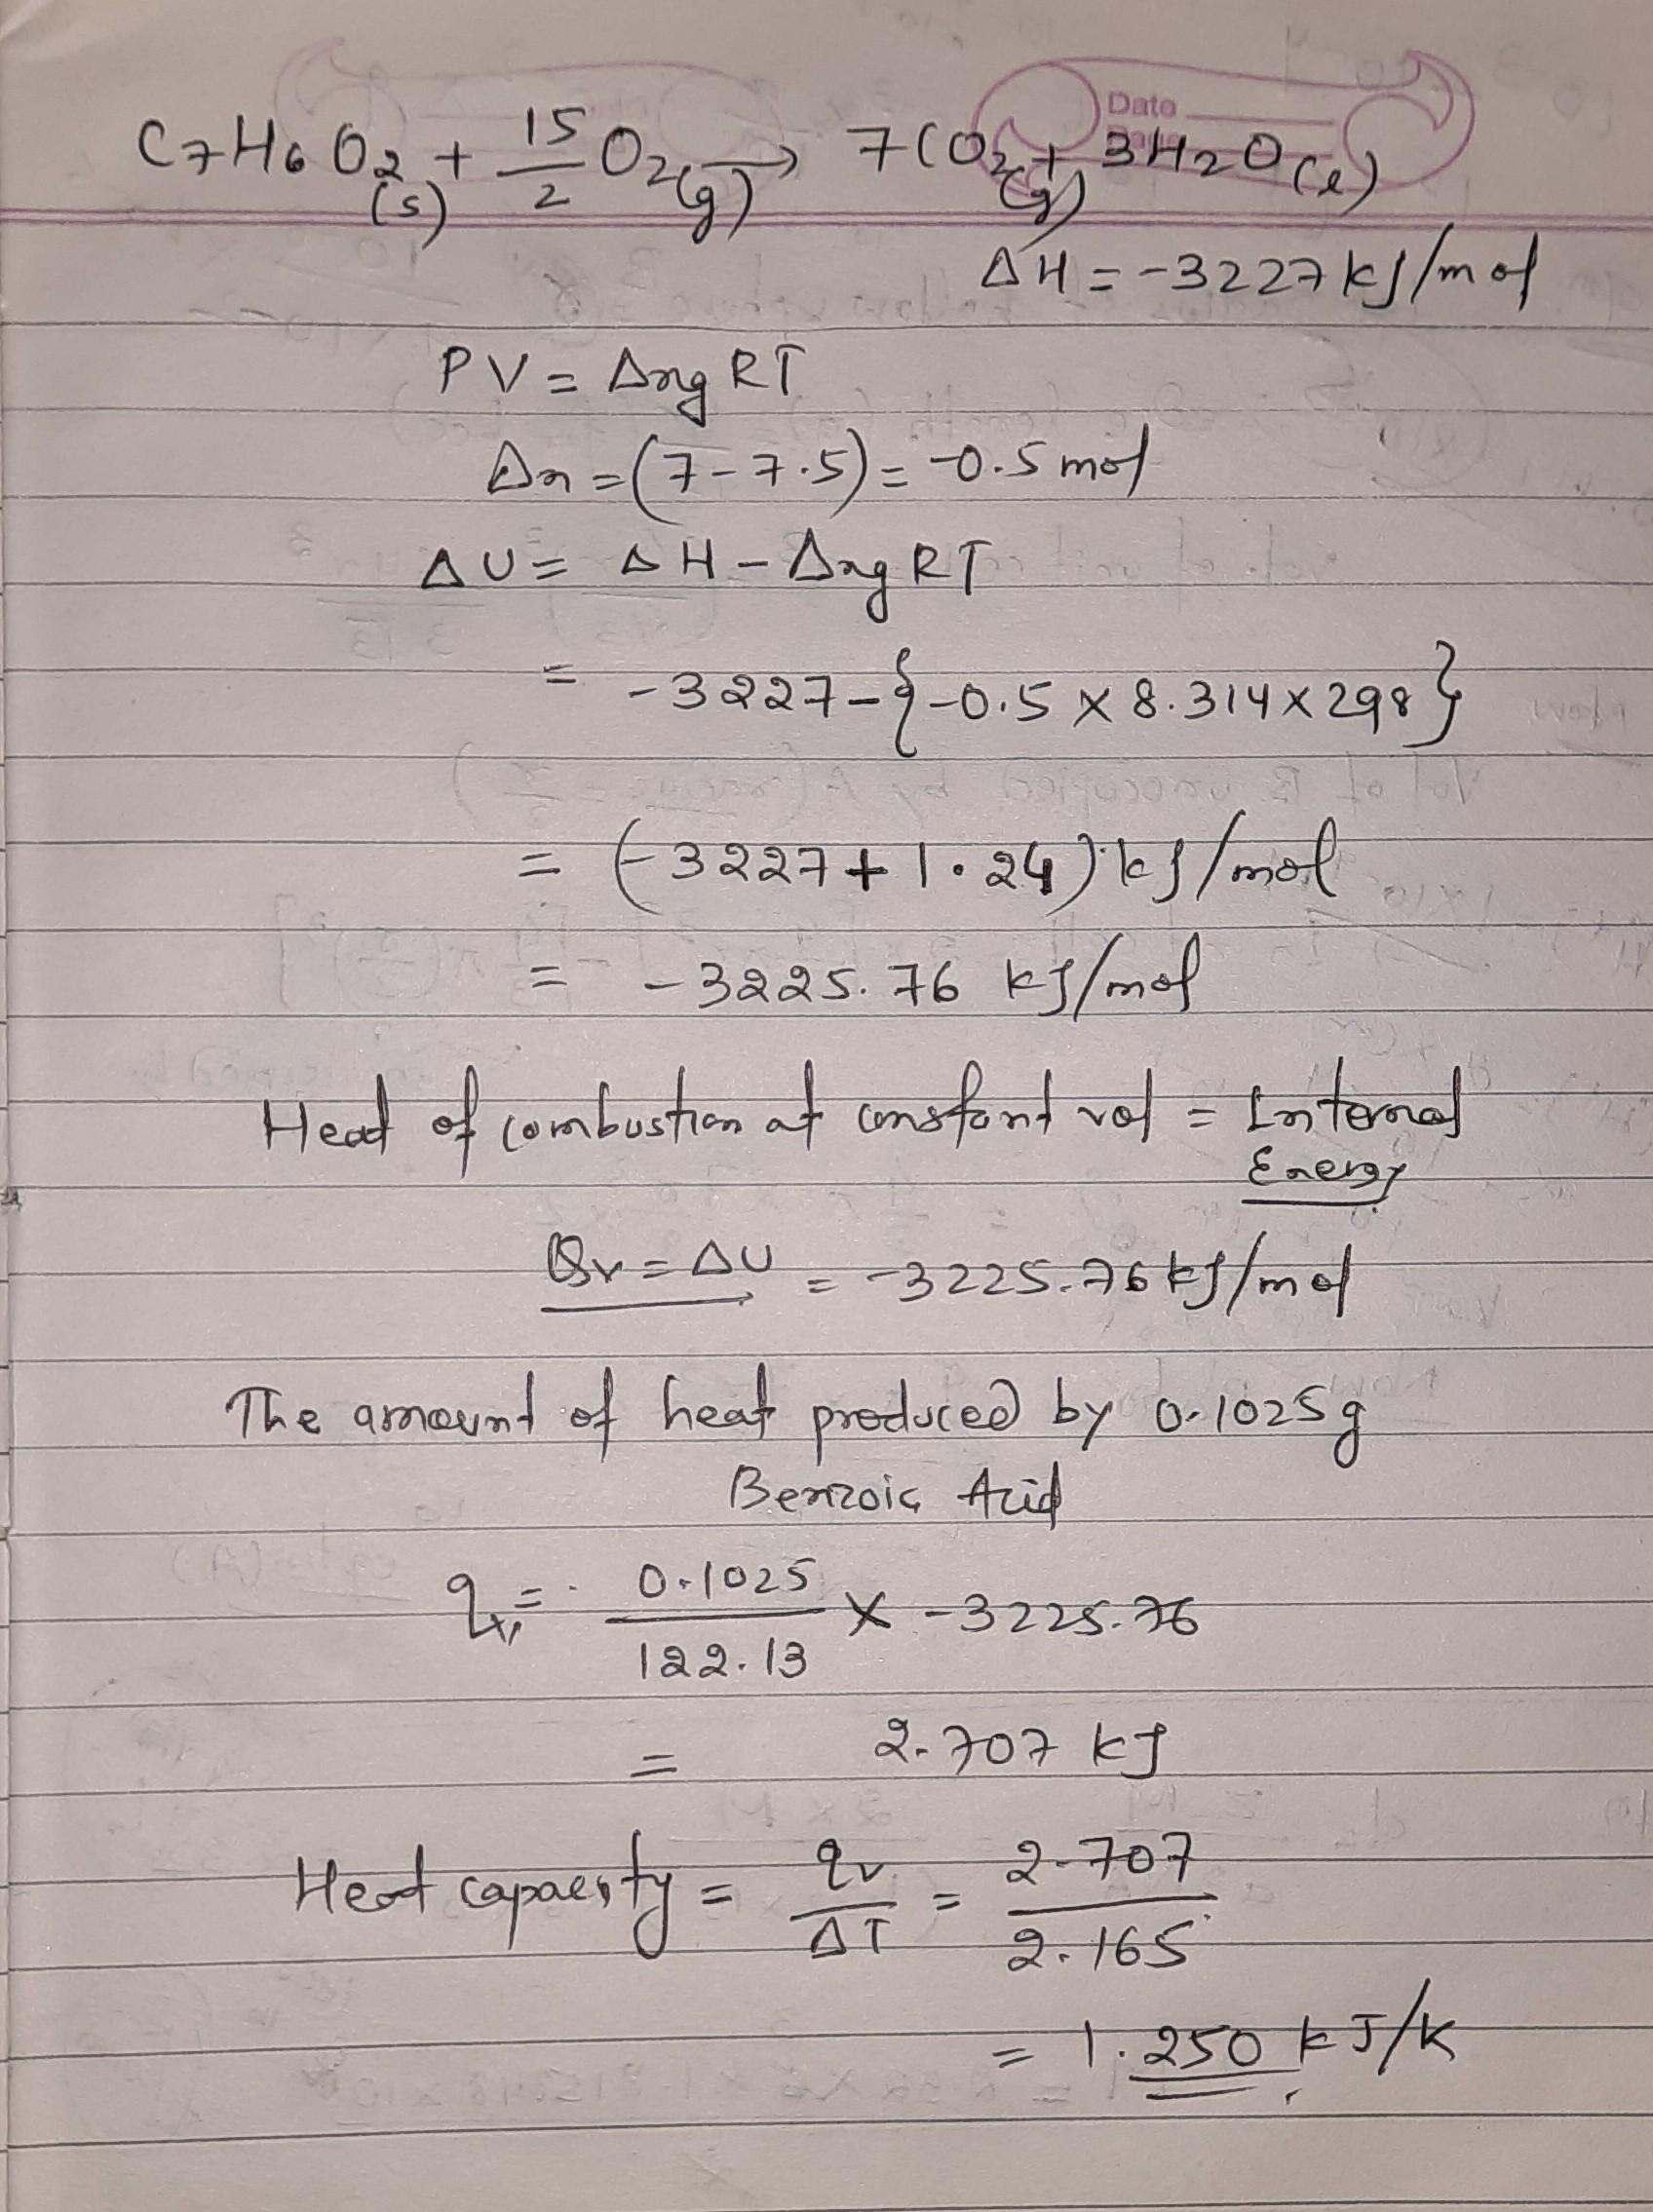 Date
C7H6O2(s) + 15/2 O2(g) → 7CO2(g) + 3H2O(l)
ΔH = -3227 kJ/mol
PV = Δng RT
Δn = (7-7.5) = -0.5 mol
ΔU = ΔH - Δng RT
= -3227-{-0.5 x 8.314 x 298}
= (-3227 + 1.24) kJ/mol
= -3225.76 kJ/mol
Heat of combustion at constant vol = Internal
Energy
Qv = ΔU = -3225.76 kJ/mol
The amount of heat produced by 0.1025g
Benzoic Acid
qv = 0.1025/122.13 x -3225.76
= 2.707 kJ
Heat capacity = qv/ΔT = 2.707/2.165
= 1.250 kJ/K